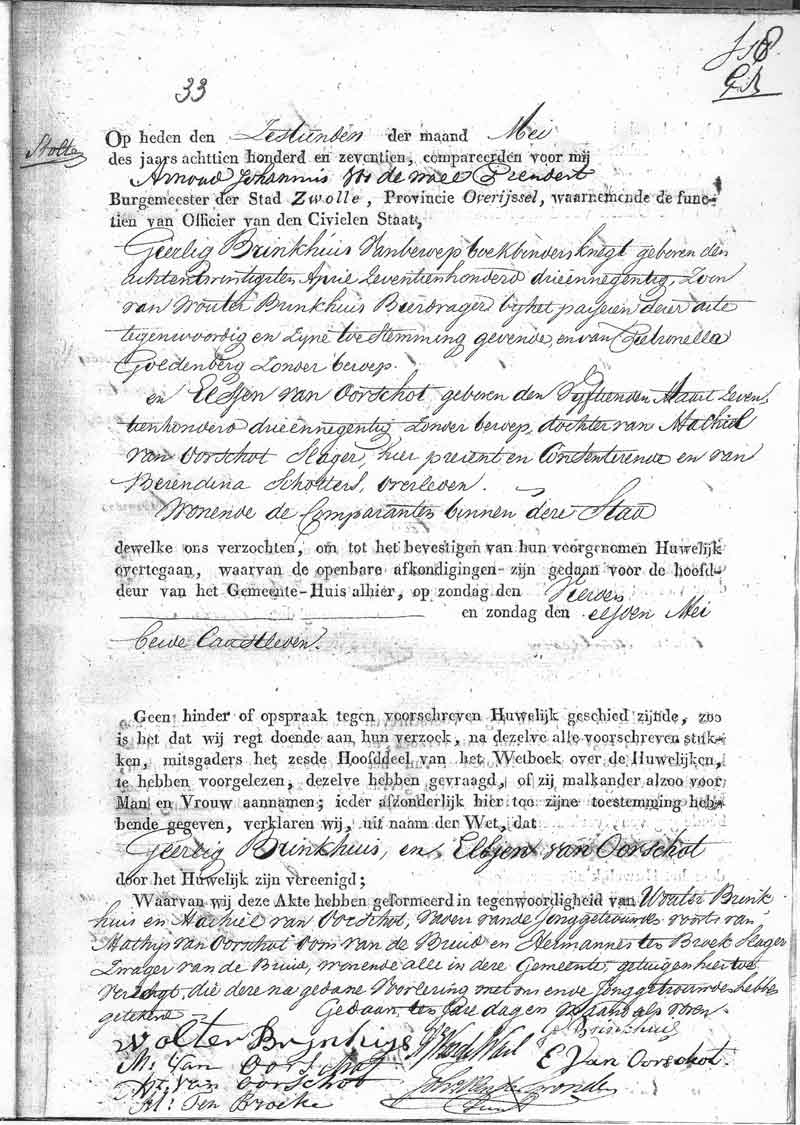 33
Stolte
Op heden den Zestienden der maand Mei
des jaars achttien honderd en zeventien, compareerden voor mij
Arnoud Johannis
Burgemeester der Stad Zwolle, Provincie Overijssel, waarnemende de func-
tien van Officier van den Civielen Staat,
Geerlig Brinkhuis van beroep boekbinders knegt geboren den
achtentwintigsten April Zeventienhonderd drieënnegentig, Zoon
van Wouter Brinkhuis Bierdrager bij het passeren dezer acte
tegenwoordig en Zijne toestemming gevende, en van Petronella
Goldenberg Zonder beroep.
en Elsjen van Oorschot geboren den Vijftienden Maart Zeven-
tienhonderd drieënnegentig Zonder beroep, dochter van Machiel
van Oorschot Slager, hier present en Consenterende en van
Berendina Scholters, overleden.
Wonende de Comparanten binnen deze Stad
dewelke ons verzochten, om tot het bevestigen van hun voorgenomen Huwelijk
overtegaan, waarvan de openbare afkondigingen zijn gedaan voor de hoofd-
deur van het Gemeente-Huis alhier, op zondag den Vierden
en zondag den elfden Mei
beide Laastleden.
Geen hinder of opspraak tegen voorschreven Huwelijk geschied zijnde, zoo
is het dat wij regt doende aan hun verzoek, na dezelve alle voorschreven stuk-
ken, mitsgaders het zesde Hoofddeel van het Wetboek over de Huwelijken,
te hebben voorgelezen, dezelve hebben gevraagd, of zij malkander alzoo voor
Man en Vrouw aannamen; ieder afzonderlijk hier toe zijne toestemming heb-
bende gegeven, verklaren wij, uit naam der Wet, dat
Geerlig Brinkhuis, en Elsjen van Oorschot
door het Huwelijk zijn vereenigd;
Waarvan wij deze Akte hebben geformeerd in tegenwoordigheid van Wouter Brink
huis en Machiel van Oorschot, vaders van de Jonggetrouwde voorts van
Mathys van Oorschot Oom van de Bruid en Hermannes ten Broek Slager
Zwager van de Bruid, wonende alle in deze Gemeente, getuigen hiertoe
verzogt, die deze na gedane Voorlezing met ons en de Jonggetrouwden hebben
getekend
Gedaan ten dage en maand als voren
G Brinkhuis
Wolter Brinkhuis
M: Van Oorschot
E Van Oorschot.
M: Van Oorschot
H: Ten Broeke